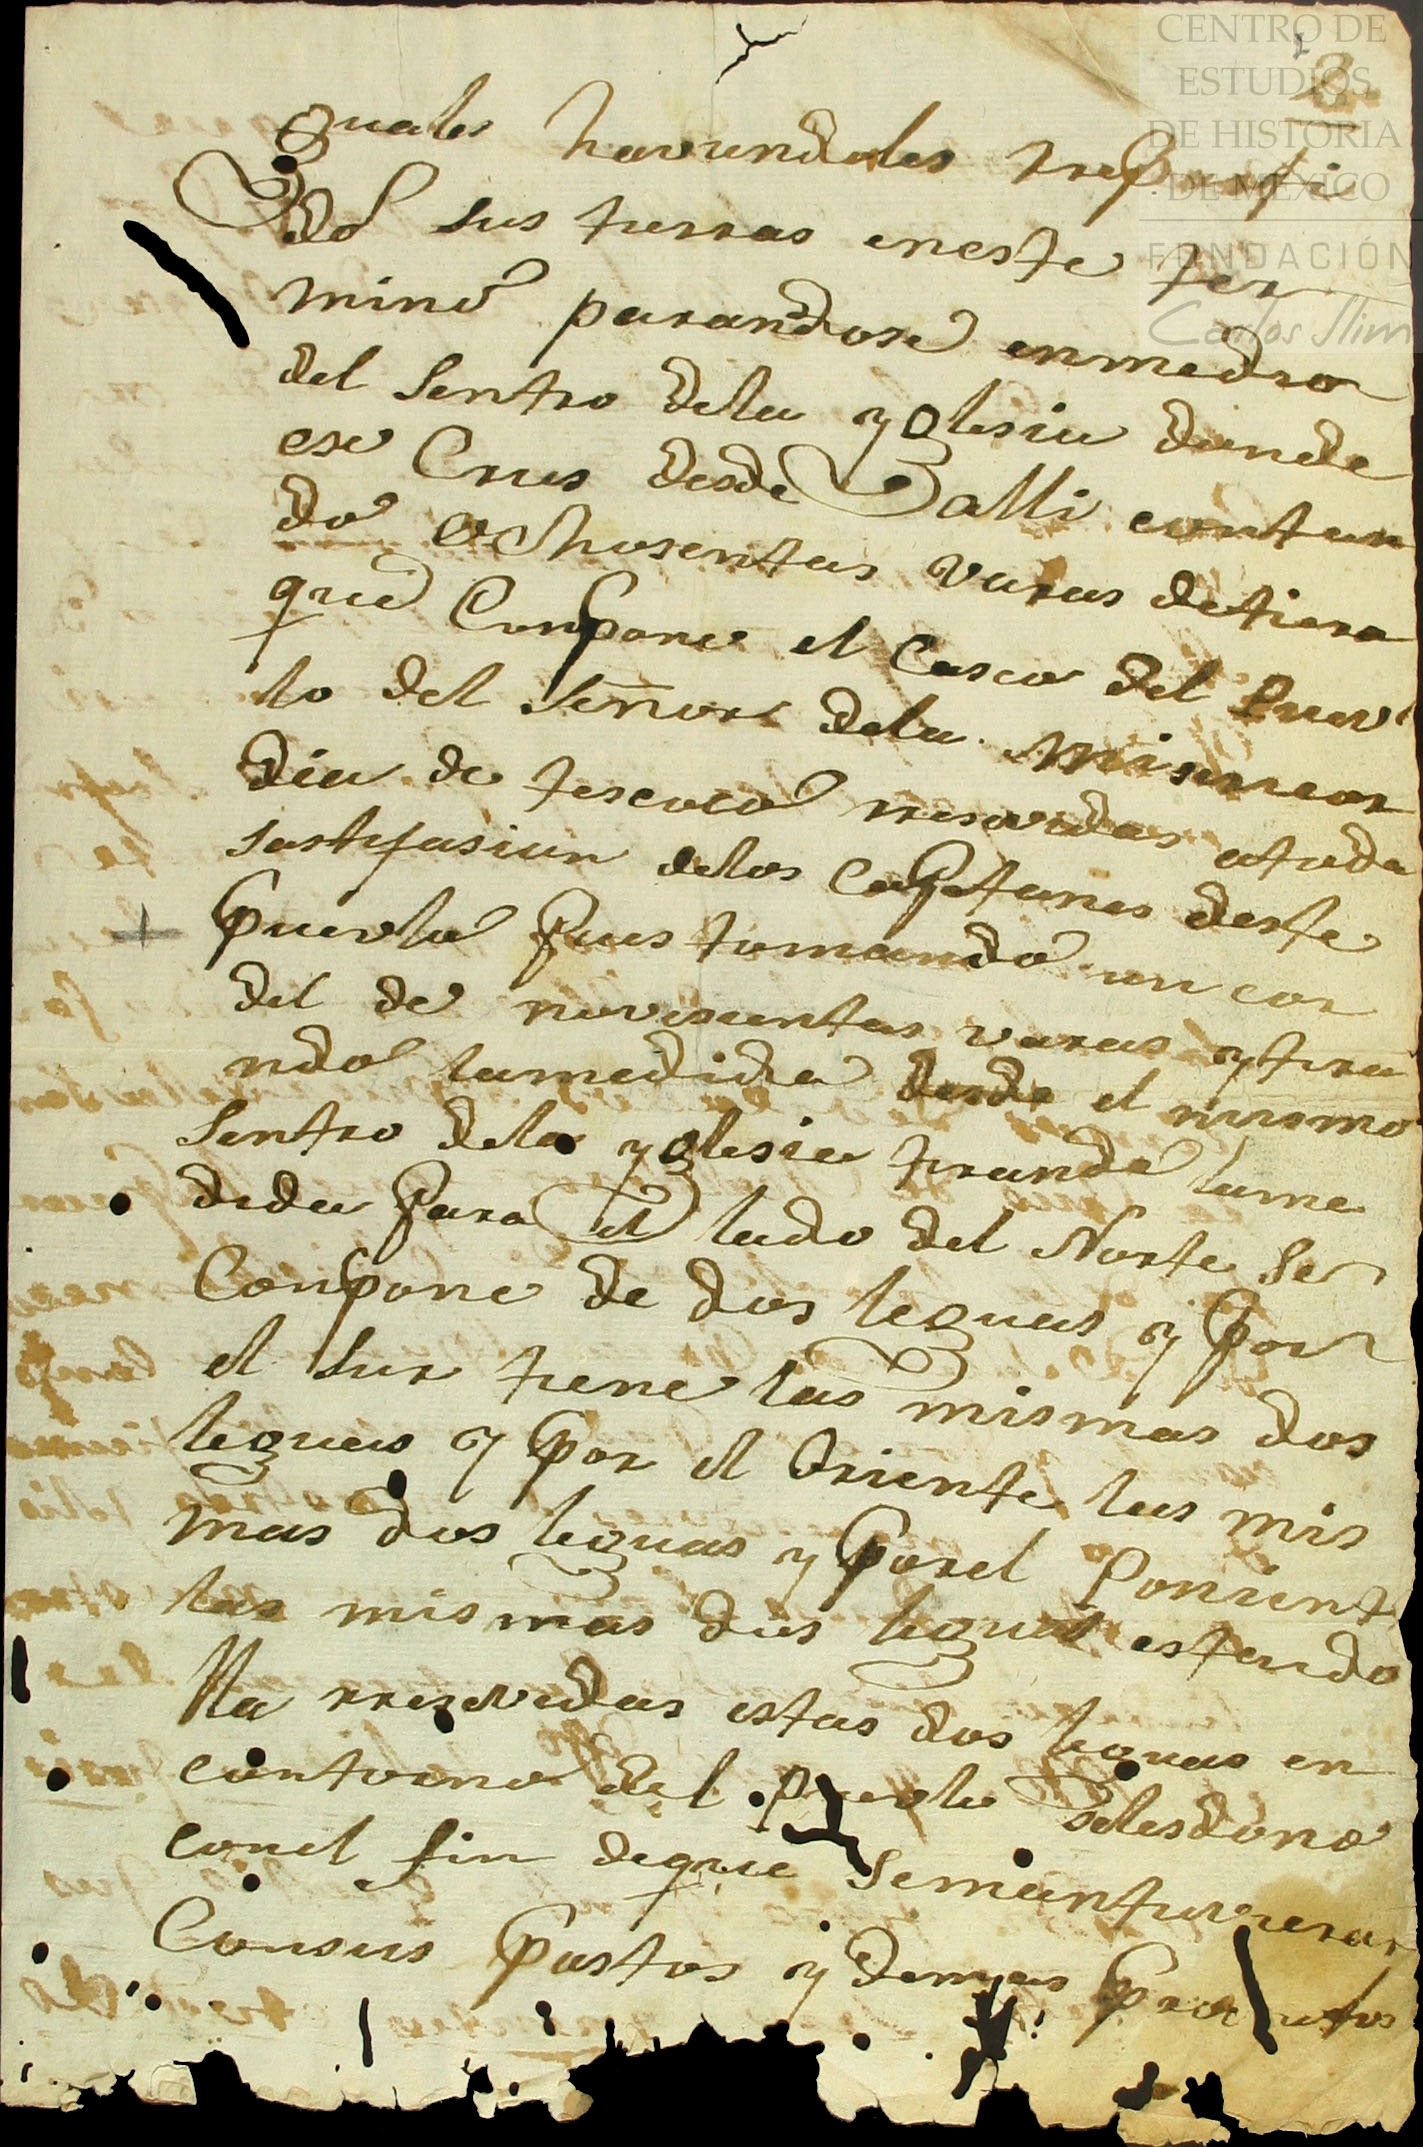 CENTRO DE
ESTUDIOS
DE HISTORIA
DE MÉXICO
FUNDACIÓN
Carlos Slim
2
quales haviendoles rreparti
do sus tierras eneste ter
mino parandose enmedio
del Sentro dela yglesia donde
ese Crus desde alli contan
do ochosentas varas detiera
que Conpone el Casco del Puev
lo del Señor dela Misericor
dia de tescoco rresevidas atoda
sastifasion delos Capitanes deste
puevlo pues tomando un cor
del de novesientas varas ytira
ndo lamedida desde el mismo
Sentro dela yglesia tirando lame
dida para el lado del Norte se
Conpone de dos leguas y por
el Sur tiene las mismas dos
leguas y por el Oriente las mis
mas dos leguas y porel Ponient
las mismas dos leguas estando
Ya rresevidas estas dos leguas en
contorno del puevlo selesdono
conel fin deque Semantuvieran
Consus pastos y demas